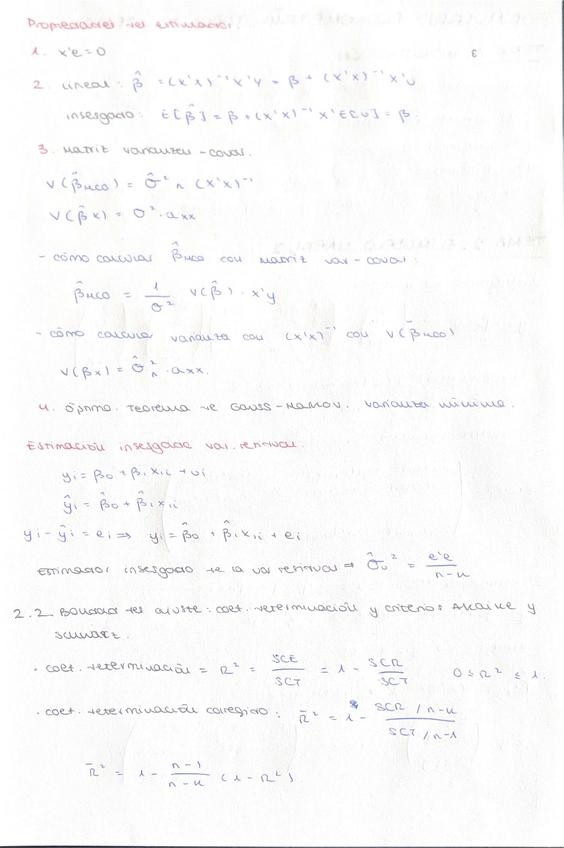 Propiedades del estimador
1. x'e = 0
2. lineal: β̂ = (x'x)⁻¹ x'y = β + (x'x)⁻¹ x'u
insesgado: E[β̂] = β + (x'x)⁻¹ x' E[u] = β
3. Matriz varianzas-covar.
V(β̂MCO) = σ̂²n (x'x)⁻¹
V(β̂k) = σ² · akk
- cómo calcular β̂MCO con matriz var-covar:
β̂MCO = 1/σ² V(β̂) · x'y
- cómo calcular varianza con (x'x)⁻¹ con V(β̂MCO)
V(βk) = σ̂²n · akk.
4. óptimo. Teorema de Gauss-Markov. varianza mínima.
Estimación insesgada var. residual.
yi = β0 + β1 x1i + ui
ŷi = β̂0 + β̂1 x1i
yi - ŷi = ei ⇒ yi = β̂0 + β̂1 x1i + ei
Estimador insesgado de la var residual ⇒ σ̂u² = e'e / n-k
2.2. Bondad del ajuste: coef. determinación y criterios Akaike y
Schwarz.
· coef. determinación = R² = SCE/SCT = 1 - SCR/SCT 0 ≤ R² ≤ 1.
· coef. determinación corregido: R̄² = 1 - (SCR / n-k) / (SCT / n-1)
R̄² = 1 - n-1 / n-k (1 - R²)